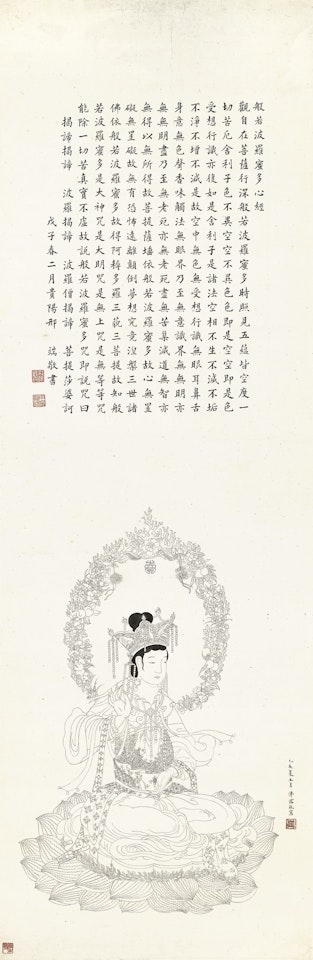 般若波羅蜜多心經
觀自在菩薩行深般若波羅蜜多時照見五蘊皆空度一
切苦厄舍利子色不異空空不異色色即是空空即是色
受想行識亦復如是舍利子是諸法空相不生不滅不垢
不淨不增不減是故空中無色無受想行識無眼耳鼻舌
身意無色聲香味觸法無眼界乃至無意識界無無明亦
無無明盡乃至無老死亦無老死盡無苦集滅道無智亦
無得以無所得故菩提薩埵依般若波羅蜜多故心無罣
礙無罣礙故無有恐怖遠離顛倒夢想究竟涅槃三世諸
佛依般若波羅蜜多故得阿耨多羅三藐三菩提故知般
若波羅蜜多是大神咒是大明咒是無上咒是無等等咒
能除一切苦真實不虛故說般若波羅蜜多咒即說咒曰
揭諦揭諦 波羅揭諦 波羅僧揭諦 菩提莎婆訶
戊子春二月貴陽邢端敬書